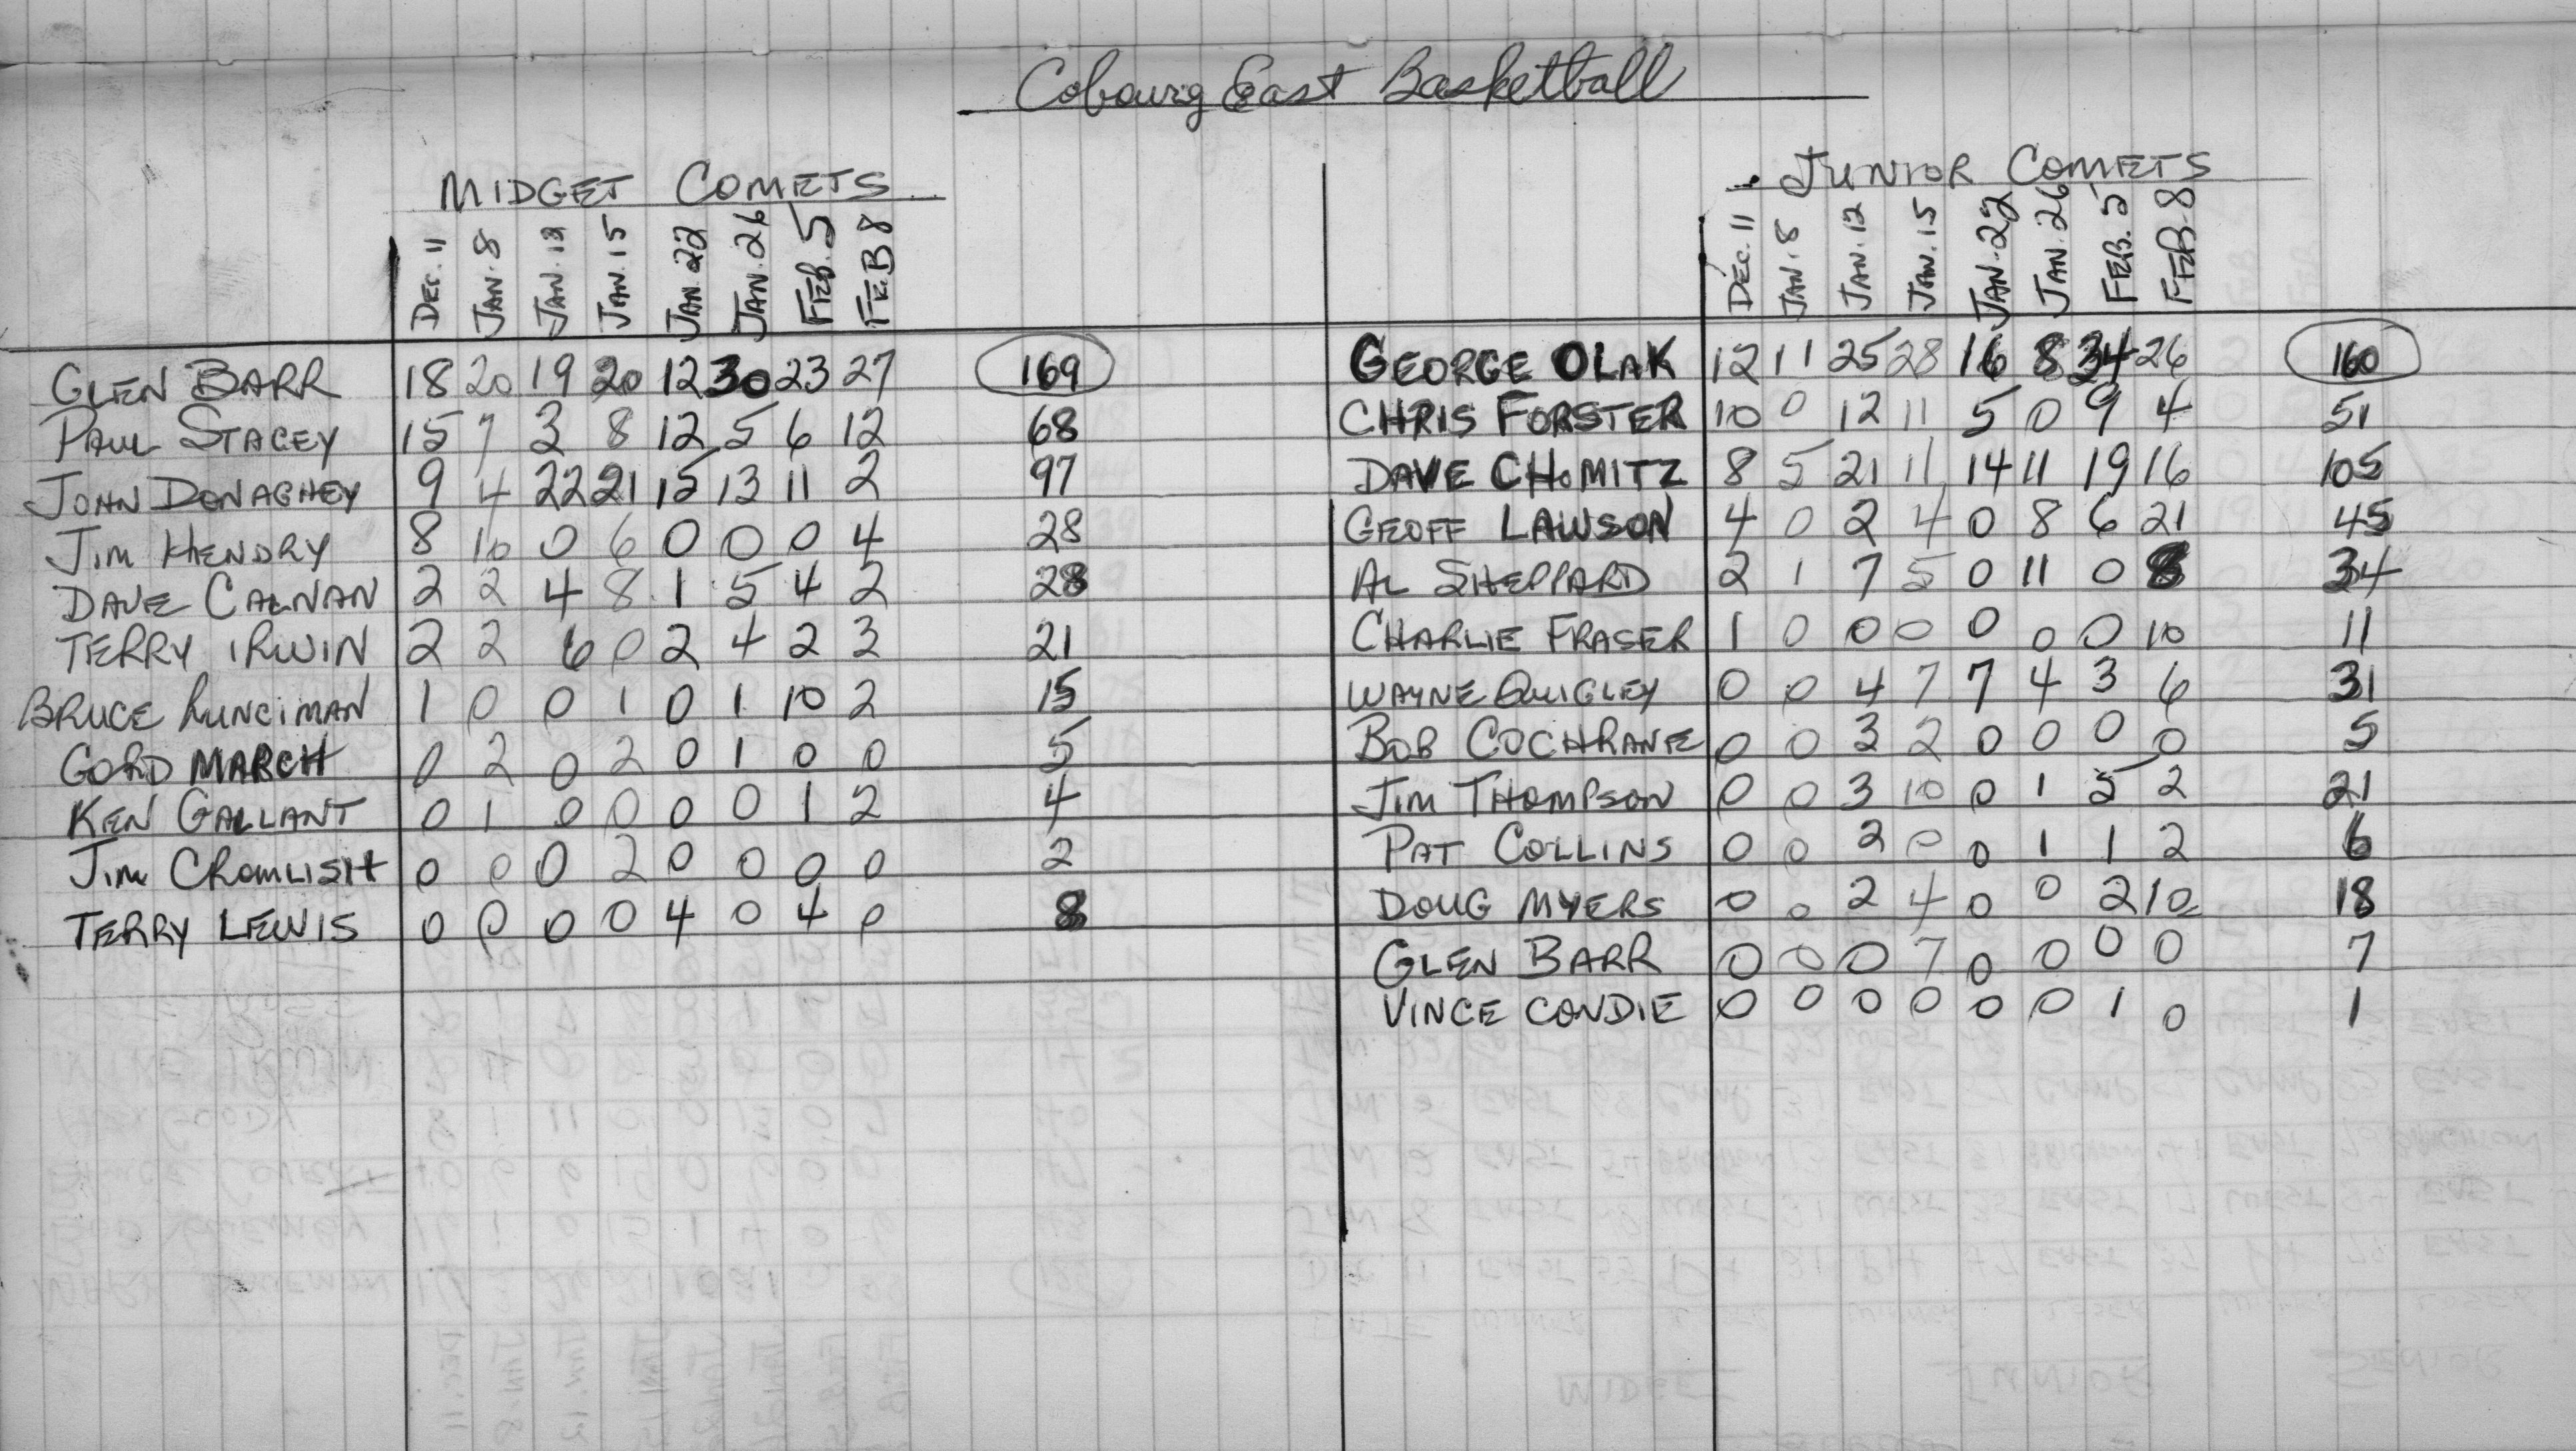 Cobourg East Basketball
MIDGET COMETS
DEC. 11 JAN. 8 JAN. 12 JAN. 15 JAN. 22 JAN. 26 FEB. 5 FEB 8
GLEN BARR 18 20 19 20 12 30 23 27 169
PAUL STACEY 15 7 3 8 12 5 6 12 68
JOHN DONAGHEY 9 4 22 21 15 13 11 2 97
JIM HENDRY 8 10 0 6 0 0 0 4 28
DAVE CALNAN 2 2 4 8 1 5 4 2 28
TERRY IRWIN 2 2 6 0 2 4 2 3 21
BRUCE RUNCIMAN 1 0 0 1 0 1 10 2 15
GORD MARCH 0 2 0 2 0 1 0 0 5
KEN GALLANT 0 1 0 0 0 0 1 2 4
JIM CROMLISH 0 0 0 2 0 0 0 0 2
TERRY LEWIS 0 0 0 0 4 0 4 0 8
JUNIOR COMETS
DEC. 11 JAN. 8 JAN. 12 JAN. 15 JAN. 22 JAN. 26 FEB. 5 FEB. 8
GEORGE OLAK 12 11 25 28 16 8 34 26 160
CHRIS FORSTER 10 0 12 11 5 0 9 4 51
DAVE CHOMITZ 8 5 21 11 14 11 19 16 105
GEOFF LAWSON 4 0 2 4 0 8 6 21 45
AL SHEPPARD 2 1 7 5 0 11 0 8 34
CHARLIE FRASER 1 0 0 0 0 0 0 10 11
WAYNE QUIGLEY 0 0 4 7 7 4 3 6 31
BOB COCHRANE 0 0 3 2 0 0 0 0 5
JIM THOMPSON 0 0 3 10 0 1 5 2 21
PAT COLLINS 0 0 2 0 0 1 1 2 6
DOUG MYERS 0 0 2 4 0 0 2 10 18
GLEN BARR 0 0 0 7 0 0 0 0 7
VINCE CONDIE 0 0 0 0 0 0 1 0 1